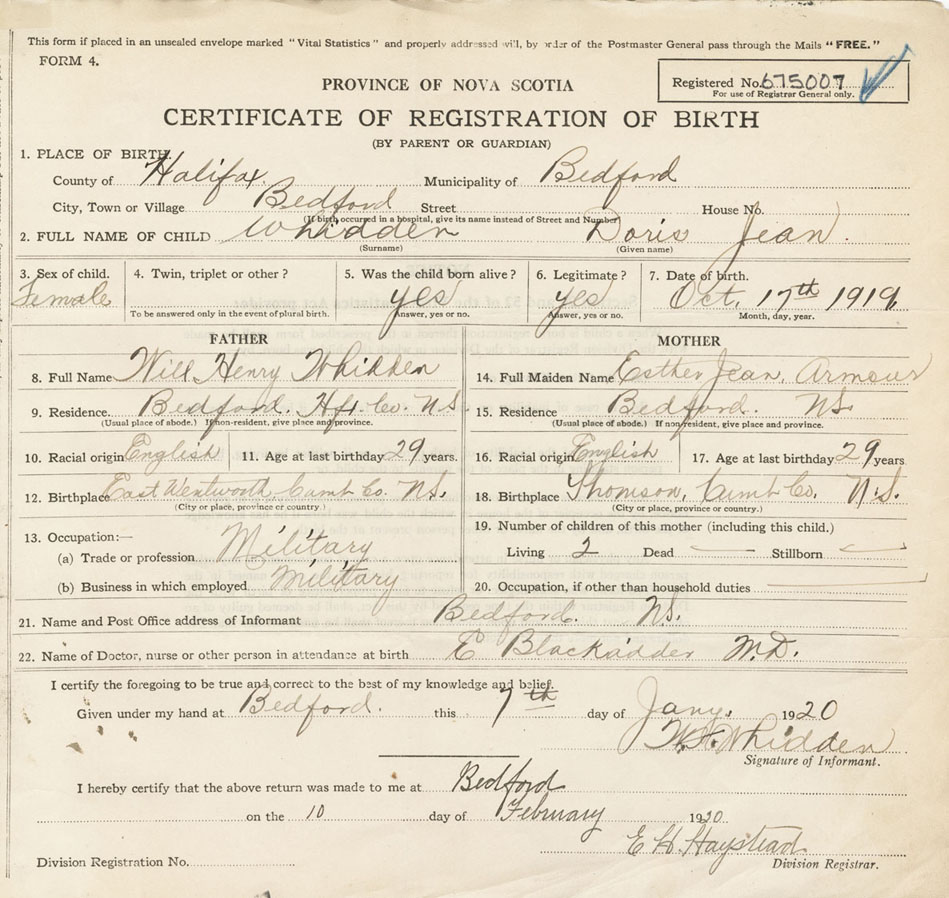 This form if placed in an unsealed envelope marked "Vital Statistics" and properly addressed will, by order of the Postmaster General pass through the Mails "FREE."
FORM 4.
Registered No. 675007
For use of Registrar General only.
PROVINCE OF NOVA SCOTIA
CERTIFICATE OF REGISTRATION OF BIRTH
(BY PARENT OR GUARDIAN)
1. PLACE OF BIRTH.
County of Halifax. Municipality of Bedford
City, Town or Village Bedford Street House No.
(If birth occurred in a hospital, give its name instead of Street and Number)
2. FULL NAME OF CHILD Whidden Doris Jean.
(Surname) (Given name)
3. Sex of child. 4. Twin, triplet or other? 5. Was the child born alive? 6. Legitimate? 7. Date of birth.
Female yes yes Oct. 17th 1919.
To be answered only in the event of plural birth. Answer, yes or no. Answer, yes or no. Month, day, year.
FATHER
8. Full Name Will Henry Whidden
9. Residence. Bedford. Hfx. Co. NS
(Usual place of abode.) If non-resident, give place and province.
10. Racial origin English 11. Age at last birthday 29 years.
12. Birthplace East Wentworth, Cumb Co. NS.
(City or place, province or country.)
13. Occupation:—
(a) Trade or profession Military
(b) Business in which employed Military
MOTHER
14. Full Maiden Name Esther Jean. Armour
15. Residence Bedford. NS.
(Usual place of abode.) If non-resident, give place and province.
16. Racial origin English 17. Age at last birthday 29 years
18. Birthplace Thomson, Cumb Co. N.S.
(City or place, province or country.)
19. Number of children of this mother (including this child.)
Living 2 Dead — Stillborn —
20. Occupation, if other than household duties
21. Name and Post Office address of Informant Bedford. NS.
22. Name of Doctor, nurse or other person in attendance at birth E Blackadder M.D.
I certify the foregoing to be true and correct to the best of my knowledge and belief.
Given under my hand at Bedford. this 7th day of Jany. 1920
W.H. Whidden
Signature of Informant.
I hereby certify that the above return was made to me at Bedford
on the 10 day of February 1920
E H. Haystead
Division Registrar.
Division Registration No.